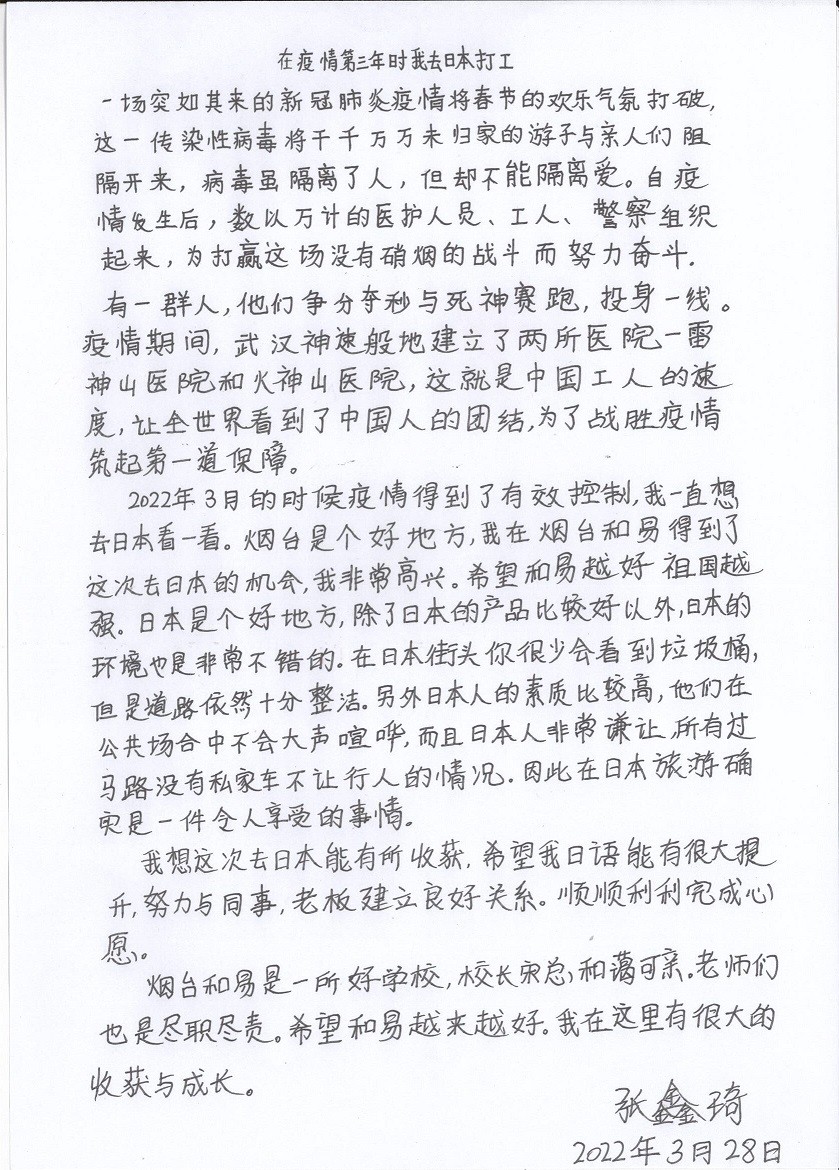 在疫情第三年时我去日本打工
一场突如其来的新冠肺炎疫情将春节的欢乐气氛打破，
这一传染性病毒将千千万万未归家的游子与亲人们阻
隔开来，病毒虽隔离了人，但却不能隔离爱。自疫
情发生后，数以万计的医护人员、工人、警察组织
起来，为打赢这场没有硝烟的战斗而努力奋斗.
有一群人，他们争分夺秒与死神赛跑，投身一线。
疫情期间，武汉神速般地建立了两所医院一雷
神山医院和火神山医院，这就是中国工人的速
度，让全世界看到了中国人的团结，为了战胜疫情
筑起第一道保障。
2022年3月的时候疫情得到了有效控制，我一直想
去日本看一看。烟台是个好地方，我在烟台和易得到了
这次去日本的机会，我非常高兴。希望和易越好祖国越
强。日本是个好地方，除了日本的产品比较好以外，日本的
环境也是非常不错的.在日本街头你很少会看到垃圾桶，
但是道路依然十分整洁.另外日本人的素质比较高，他们在
公共场合中不会大声喧哗，而且日本人非常谦让，所有过
马路没有私家车不让行人的情况.因此在日本旅游确
实是一件令人享受的事情。
我想这次去日本能有所收获，希望我日语能有很大提
升，努力与同事，老板建立良好关系。顺顺利利完成心
愿。
烟台和易是一所好学校，校长宋总和蔼可亲.老师们
也是尽职尽责。希望和易越来越好。我在这里有很大的
收获与成长。
张鑫琦
2022年3月28日